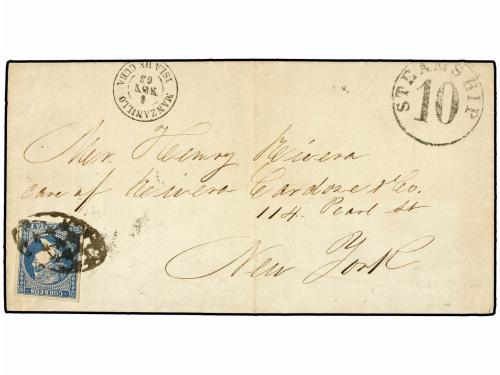 MANZANILLO
NOV
62
ISLA DE CUBA
STEAMSHIP
10
Mr. Henry Rivera
care of Rivera Cardozo & Co.
114. Pearl St
New York
CORREOS